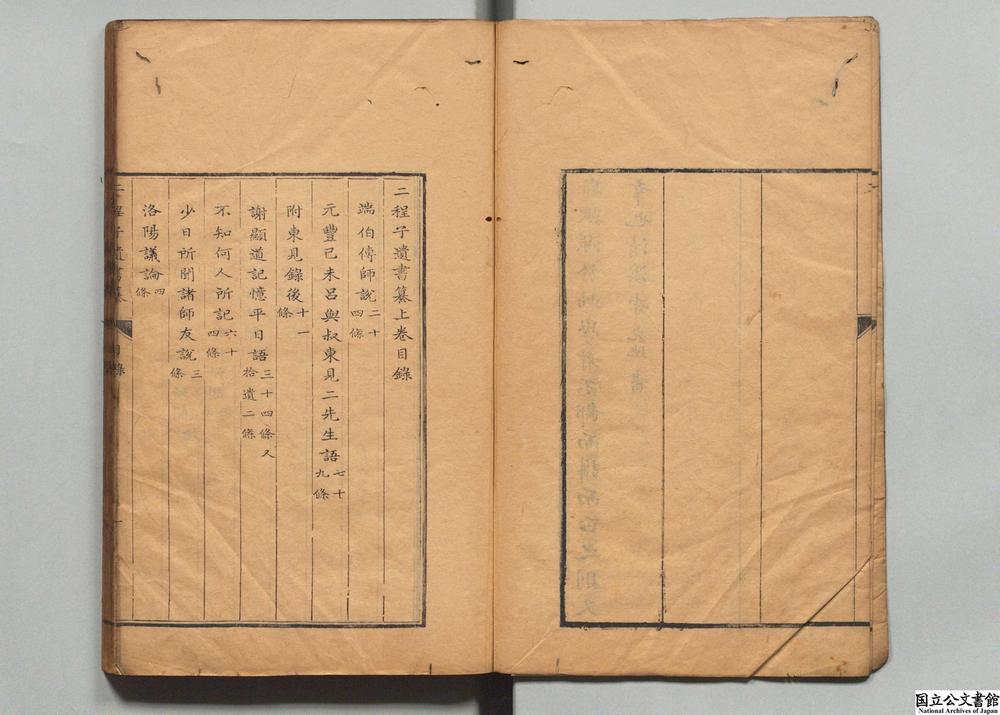 二程子遺書纂上卷目錄
端伯傳師說二十四條
元豐己未呂與叔東見二先生語七十九條
附東見錄後十一條
謝顯道記憶平日語三十四條又拾遺二條
不知何人所記六十四條
少日所聞諸師友說三條
洛陽議論四條
二程子遺書纂 目錄
国立公文書館
National Archives of Japan